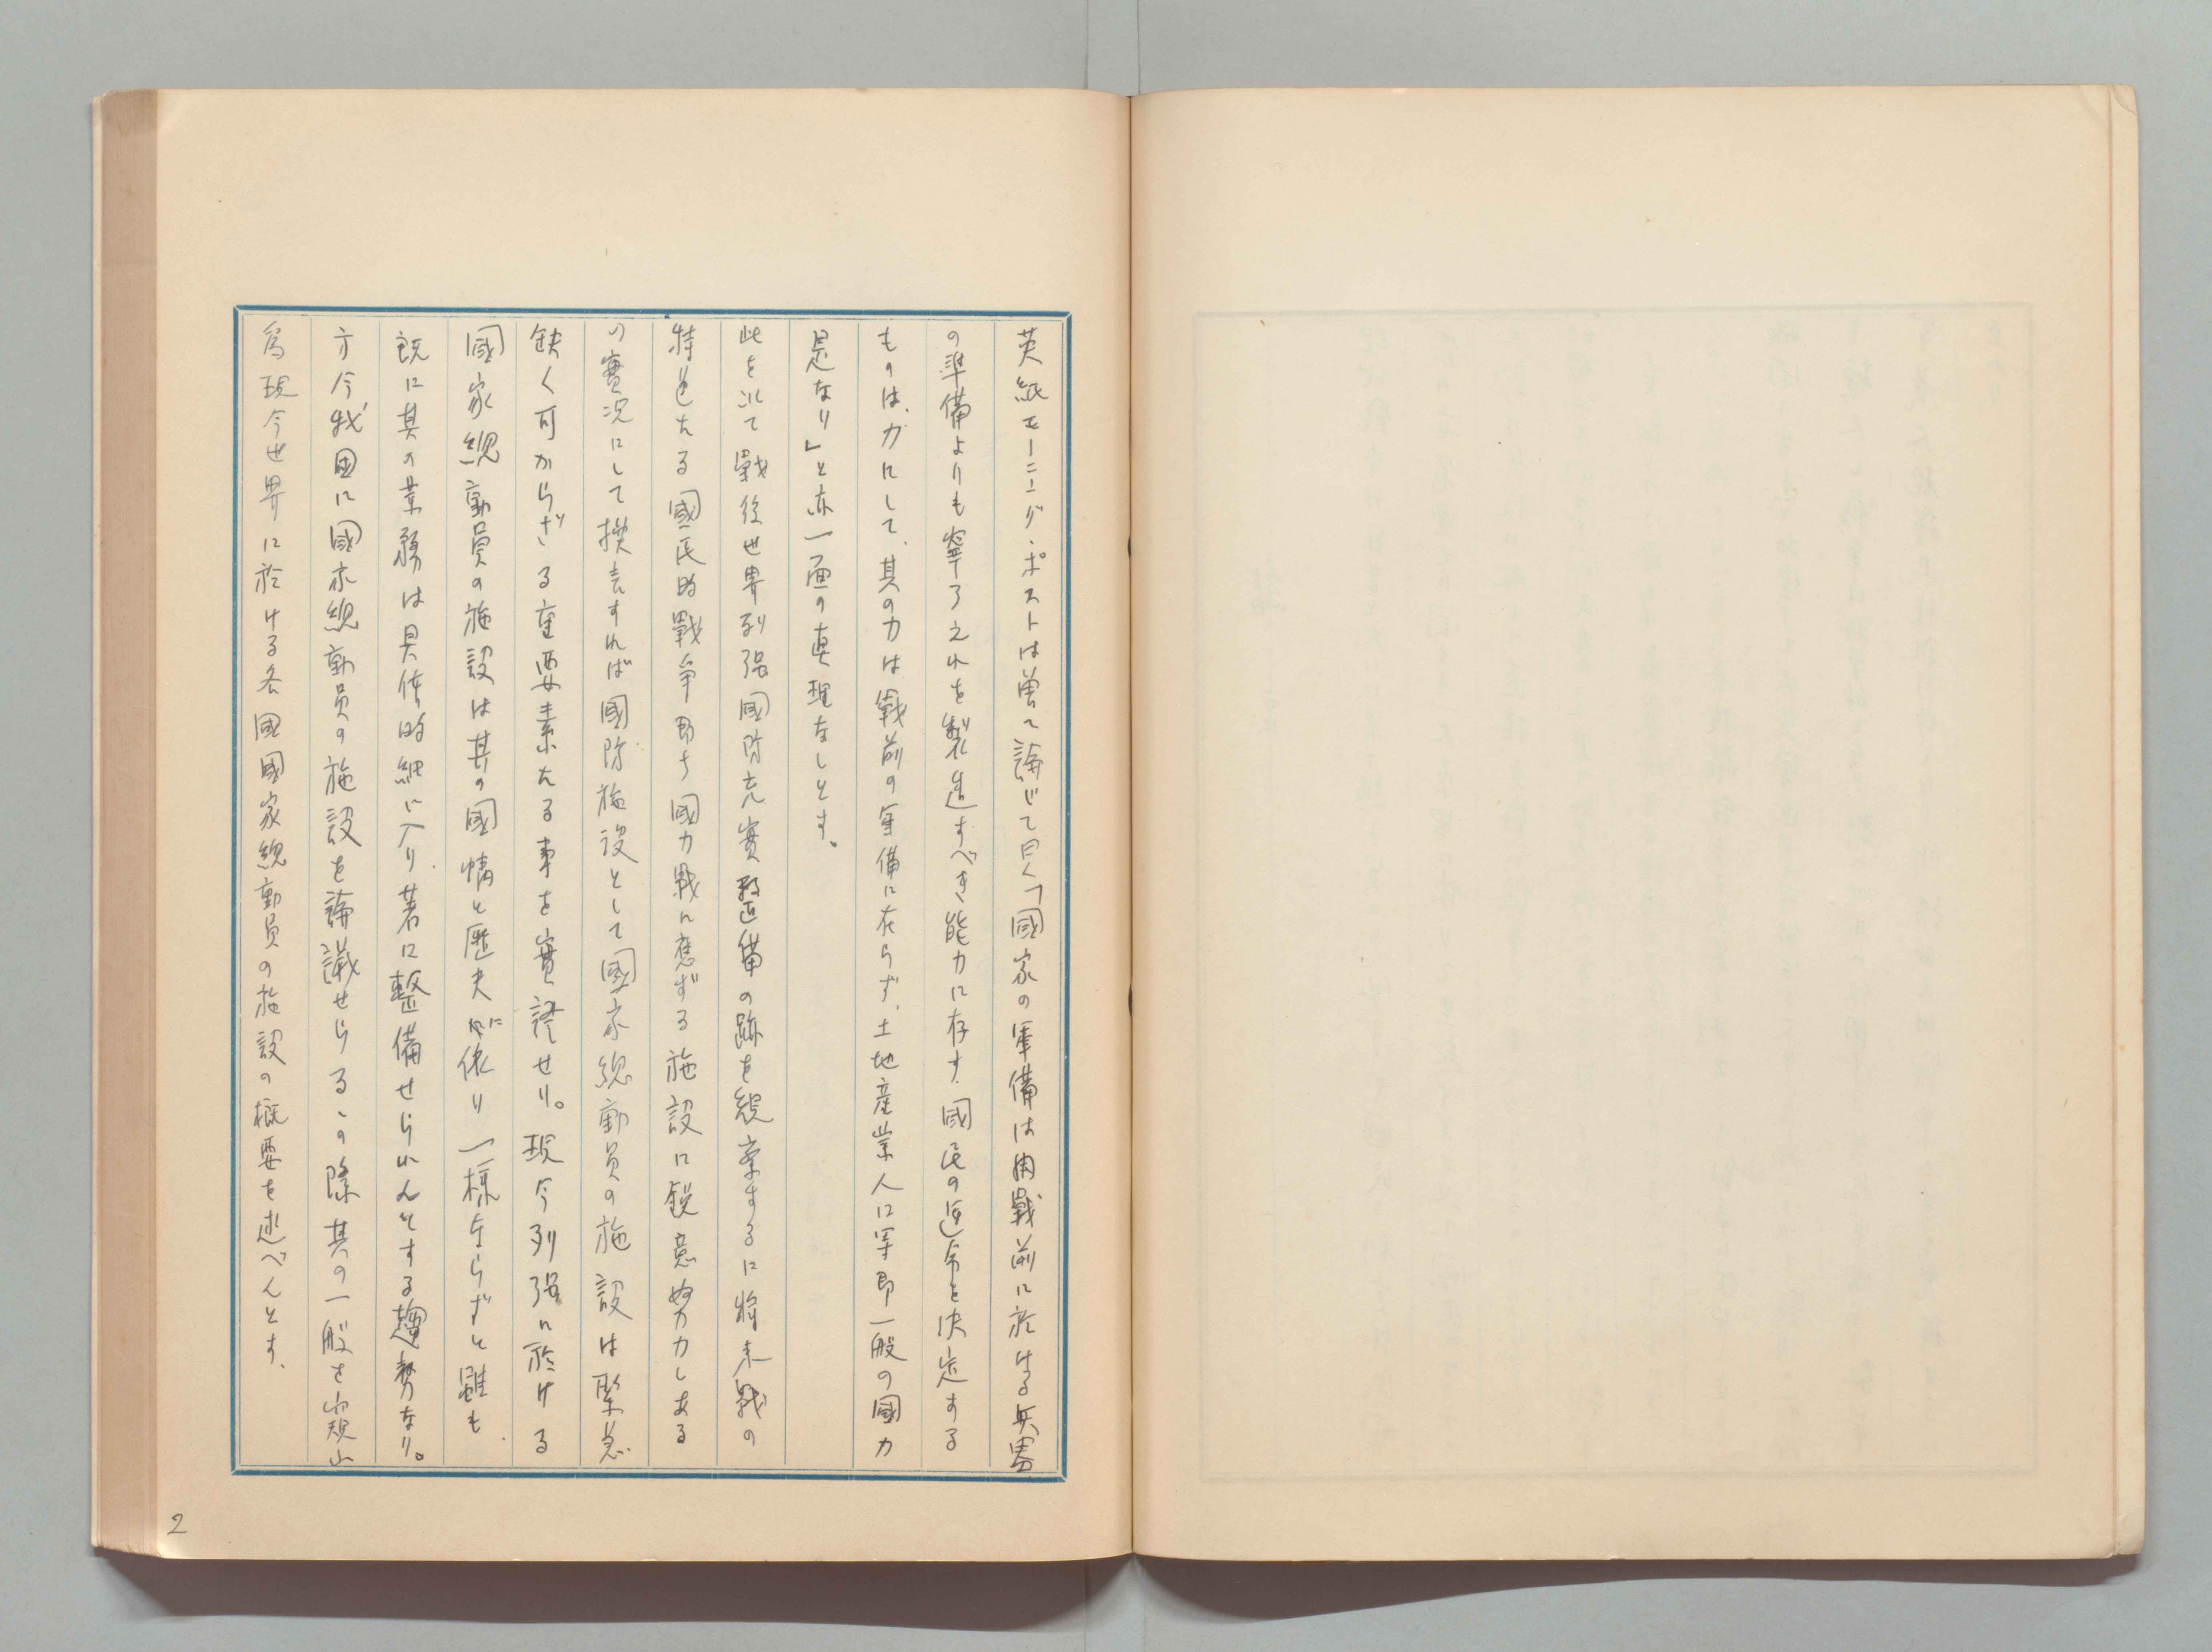 英紙モーニング・ポストは曽て論じて曰く「國家の軍備は開戰前に於ける兵器
の準備よりも寧ろ之れを製造すべき能力に存す、國民の運命を決定する
ものは、力にして、其の力は戰前の軍備に在らず、土地産業人口等即一般の國力
是なり」と亦一面の真理なしとす。
此を以て戰後世界列强國防充實整備の跡を観察するに將来戰の
特色たる國民的戰争即ち國力戰に應ずる施設に鋭意努力しある
の實況にして換言すれば國防施設として國家総動員の施設は緊急
缺く可からざる重要素たる事を實證せり。現今列强に於ける
國家総動員の施設は其の國情と歴史とに依り一様ならずと雖も、
既に其の業務は具体的細に入り著に整備せられんとする趨勢なり。
方今我國に國家総動員の施設を論議せらるゝの際其の一般を窺山
為現今世界に於ける各國國家総動員の施設の概要を述べんとす、
2